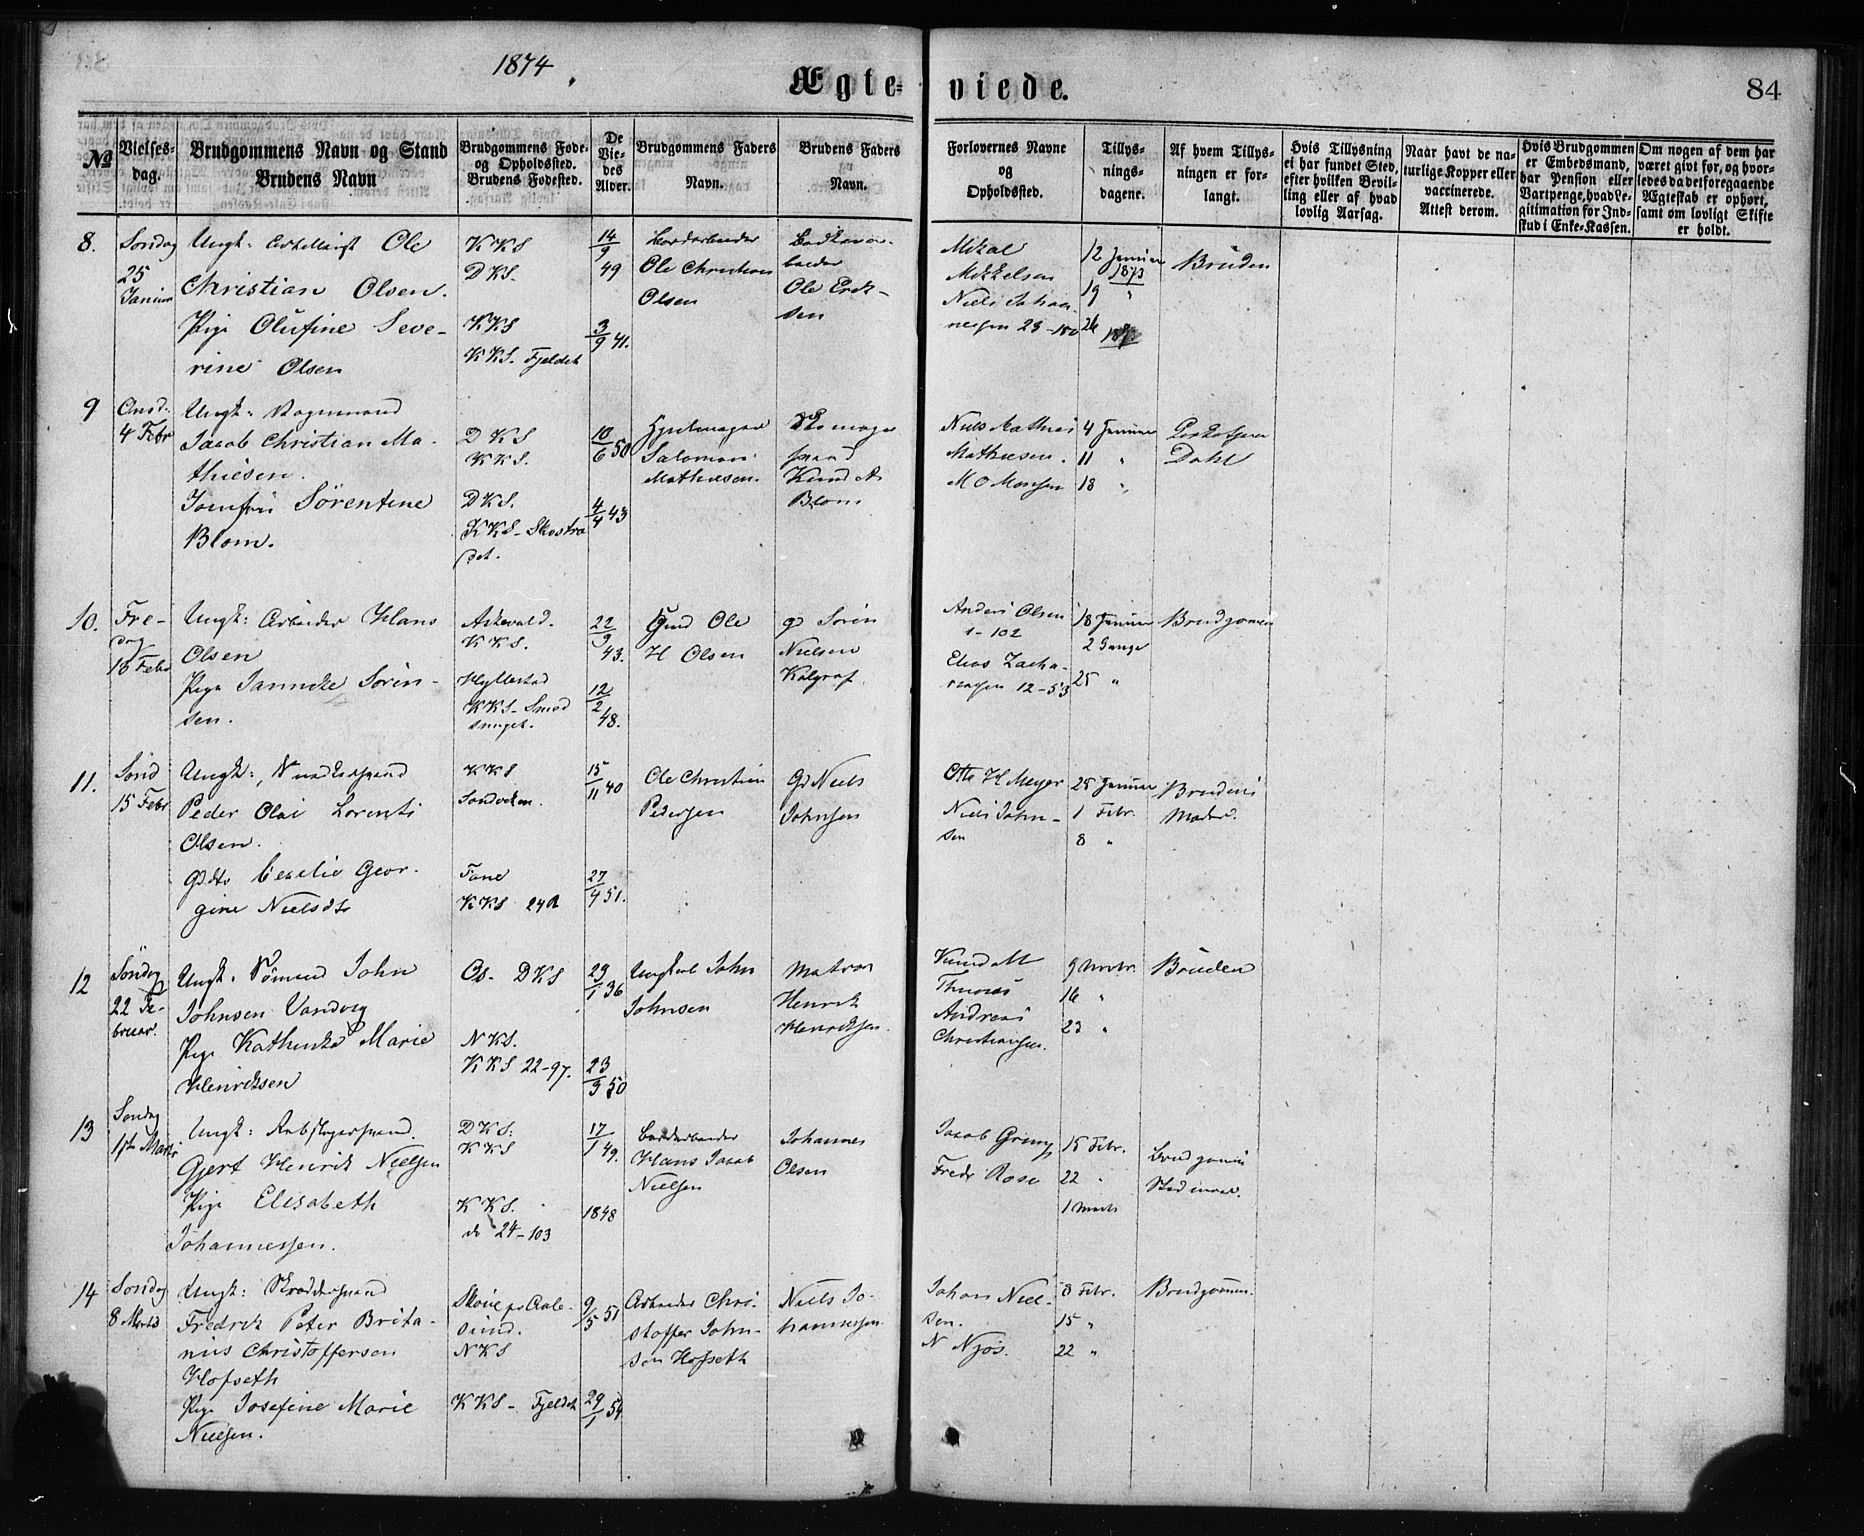 1874
Ægte= viede.
84
No
Vielses-
dag.
Brudgommens Navn og Stand
Brudens Navn
Brudgommens Føde-
og Opholdssted.
Brudens Fødested.
De
Vie-
des
Alder.
Brudgommens Faders
Navn.
Brudens Faders
Navn.
Forlovernes Navne
og
Opholdssted.
Tillys-
nings-
dagene.
Af hvem Tillys-
ningen er for-
langt.
Hvis Tillysning
ei har fundet Sted,
efter hvilken Bevil-
ling eller af hvad
lovlig Aarsag.
Naar havt de na-
turlige Kopper eller
vaccinerede.
Attest derom.
Hvis Brudgommen
er Embedsmand,
har Pension eller
Vartpenge, hvad Le-
gitimation for Ind-
skud i Enke-Kassen.
Om nogen af dem har
været givt før, og hvor-
ledes da det foregaaende
Ægteskab er ophørt,
samt om lovligt Skifte
er holdt.
8.
Søndag
25
Januar
Ungk: Ole
Christian Olsen.
Pige Olufine Seve-
rine Olsen
KKS
DKS.
KKS
KKS. Fjeldet
14/9 49
3/9 41.
Ole Christian
Olsen
Ole Erik-
sen
Mikal
Mikkelsen
Niels Johan-
nessen 23-180
12 Januar
1873
19 "
26
Bruden
9
Onsd.
4 Febr
Ungk:
Jacob Christian Ma-
thiesen.
Jomfru Sørentine
Blom.
DKS
KKS.
DKS.
KKS-
10/6 50
4/4 43
Salomon
Mathiesen.
Knud A
Blom
Niels Mathias
Mathiesen.
M O Monsen
4 Januar
11 "
18 "
Dahl
10.
Fre-
dag
Febr
Ungk: Arbeider Hans
Olsen
Pige Jannike Sørin-
sen.
Askevold.
KKS.
Hyllestad
KKS- Smed
smuget.
22/9 43.
12/2 48.
Gmd Ole
H Olsen
Gd Sørin
Nielsen
Anders Olsen
1-102
Elias Zacha-
riasen 12-53
18 Januar
2 Gange
25 "
Brudgomen
11.
Sønd
15 Febr
Ungk:
Peder Olai Lorents
Olsen.
Gdtr Cecilie Geor-
gine Nielsdtr
KKS
Sandviken.
Fane
KKS 24
15/11 40
27/4 51.
Ole Christian
Pedersen
Gd Niels
Johnsen
Otto H Meyer
Niels John-
sen
25 Januar
1 Febr.
8 "
Brudens
Moder.
12
Søndag
22 Fe-
bruar.
Ungk. Sømand John
Johnsen Vandvig
Pige Kathinka Marie
Henriksen
Os- DKS
NKS.
KKS 22-97.
29/1 36
23/9 50
Ungkarl John
Johnsen
Matros
Henrik
Henriksen.
Knud M
Andreas
Christiansen.
9 Novbr.
16 "
23 "
Bruden
13
Søndag
1ste Marts
Ungk: Rebslagersvend.
Gjert Henrik Nielsen
Pige Elisabeth
Johannessen.
DKS:
KKS
KKS.
do 24-103
17/1 49.
1848
Hans Jacob
Nielsen
Johannes
Olsen
Jacob Grung
Fredr Rose
15 Febr.
22 "
1 Marts
14
Søndag
8 Marts
Ungk: Skræddersvend
Fredrik Peter Brita-
nius Christoffersen
Hofseth
Pige Josefine Marie
Nielsen.
Skoue pr Aale-
sund.
NKS
KKS- Fjeldet
9/5 51
29/1 54
Arbeider Chri-
stoffer John-
sen Hofseth
Niels Jo-
hannessen
Johan Niel-
sen.
N Njøs.
8 Febr.
15 "
22 "
Brudgommen.